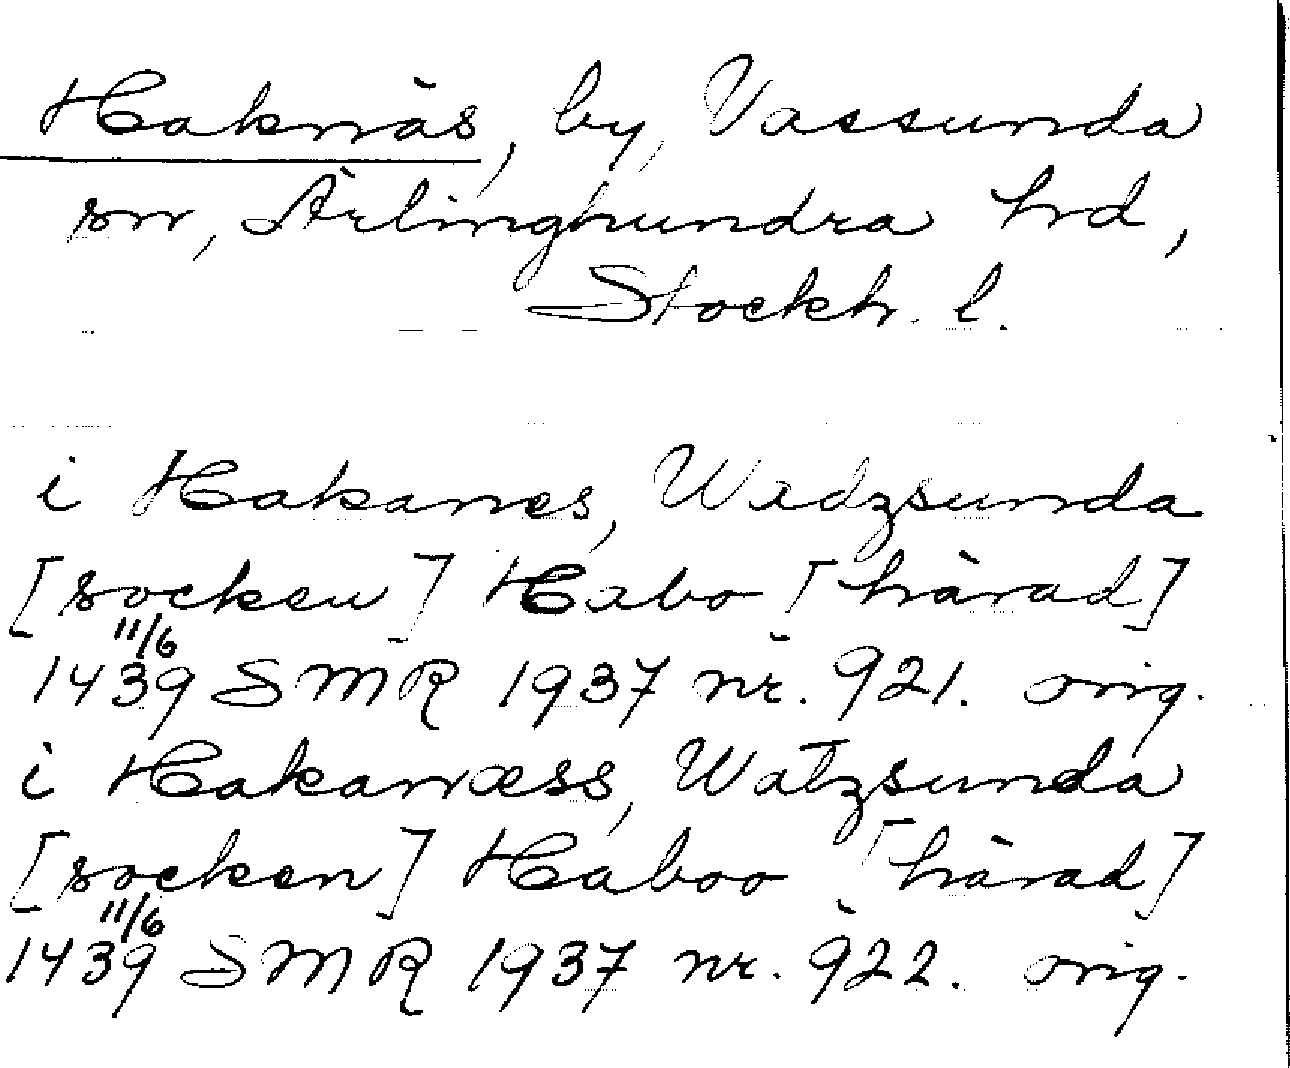 Haknäs, by, Vassunda
sn, Ärlinghundra hd,
Stockh. l.
i Hakanes, Wadzsunda
[socken] Habo [härad]
11/6
1439 SMR 1937 nr. 921. orig.
i Hakanæss, Watzsunda
[socken] Haboo [härad]
11/6
1439 SMR 1937 nr. 922. orig.